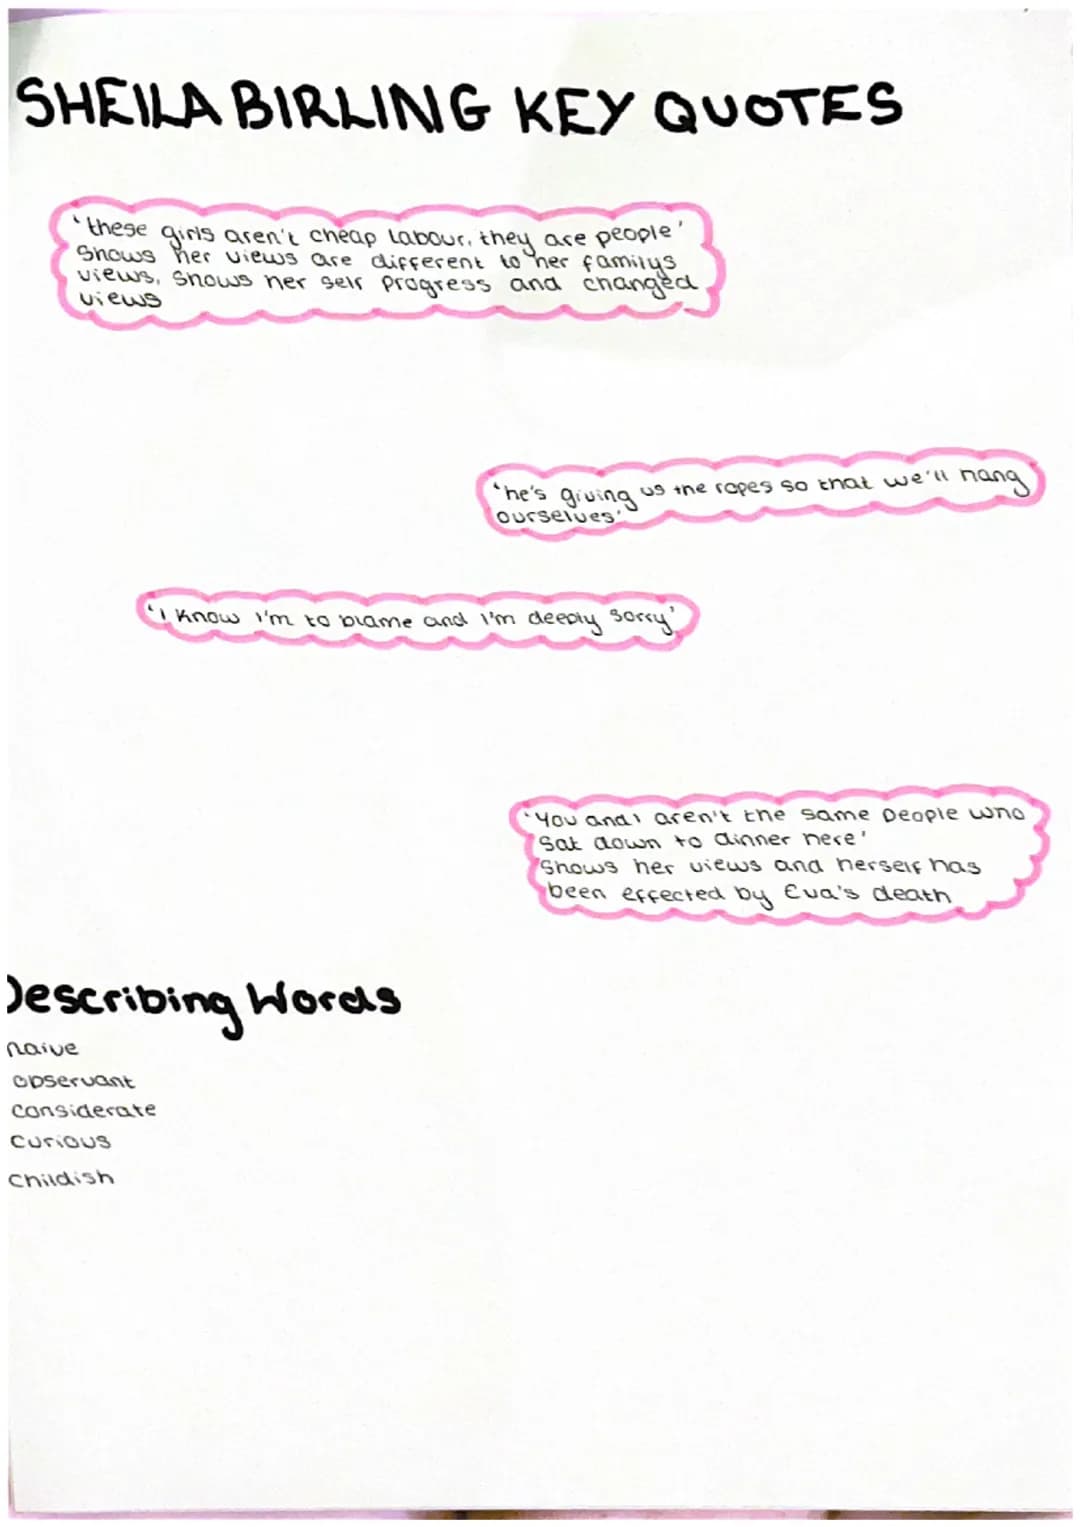 SHEILA BIRLING KEY QUOTES
'these girls aren't cheap labour, they are people'
Shows her views are different to her familys
views, shows her self progress and changed
views
'he's giving us the ropes so that we'll hang
ourselves'
'I know I'm to blame and I'm deeply sorry'
'You and I aren't the same people who
sat down to dinner here'
Shows her views and herself has
been effected by Eva's death
Describing Words
naive
observant
considerate
curious
childish